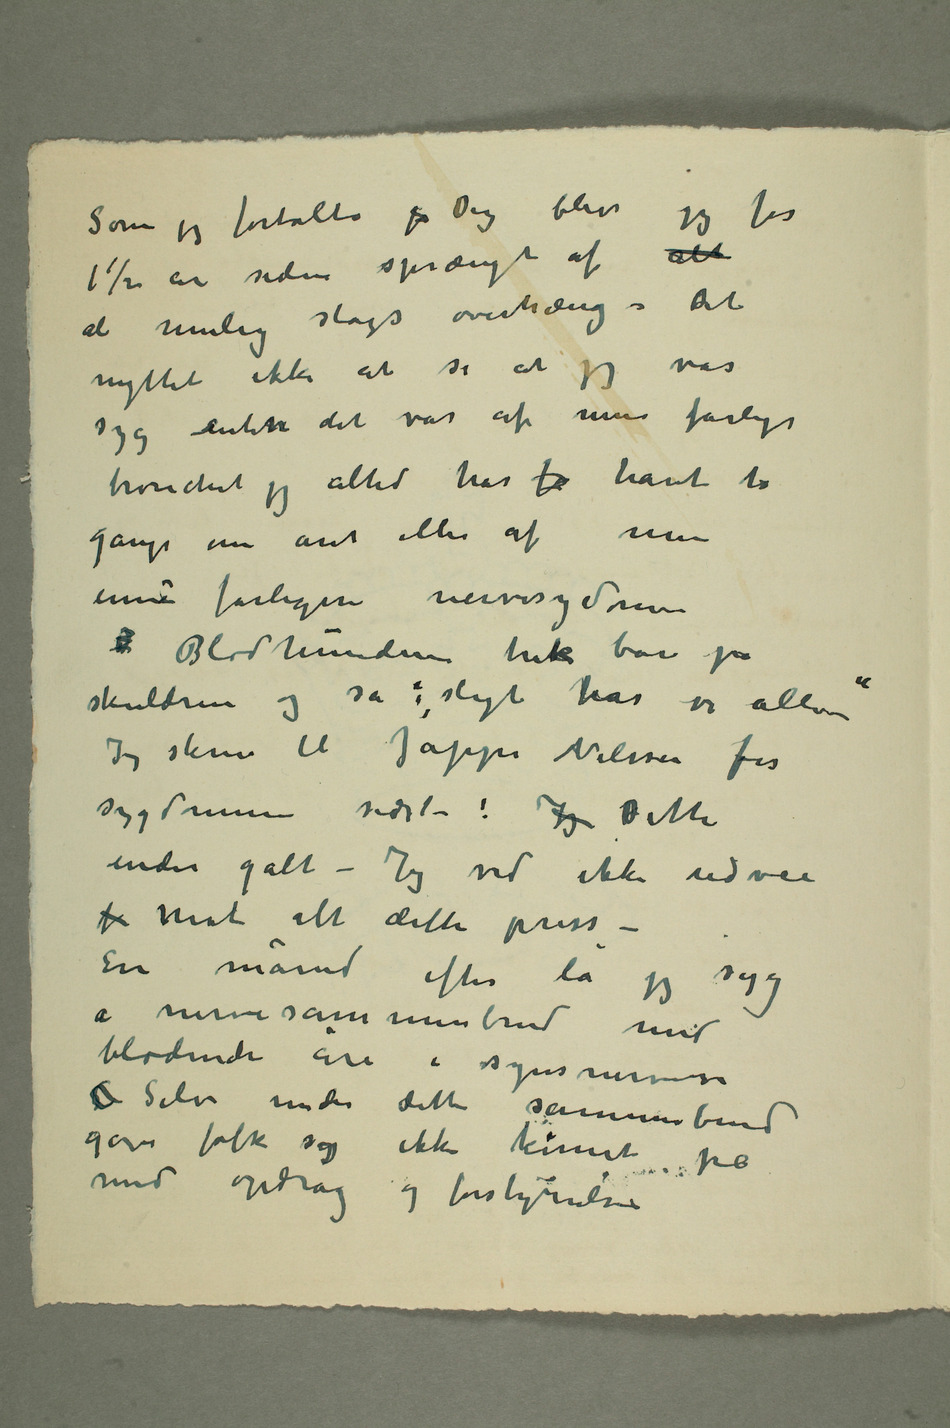 Som jeg fortalte Dig blev jeg for
1 1/2 år siden sprængt af alt
al mulig slags overhæng – Det
nyttet ikke at si at jeg var
syg enten det var af min farlige
bronchit jeg altid har få havt to
gange om året eller af min
ennu farligere nervesygdom
Blodhundene trak bare på
skuldrene og sa „sligt har vi alle“
Jeg skrev til Jappe Nilssen før
sygdommen sidst – ! Jeg Dette
ender galt – Jeg ved ikke udvei
fr mot alt dette press –
En måned efter lå jeg syg
a nervesammenbrud med
blødende åre i synsnerven
Selv under dette sammenbrud
gav folk sig ikke kimet på
med opdrag og forstyrrelser